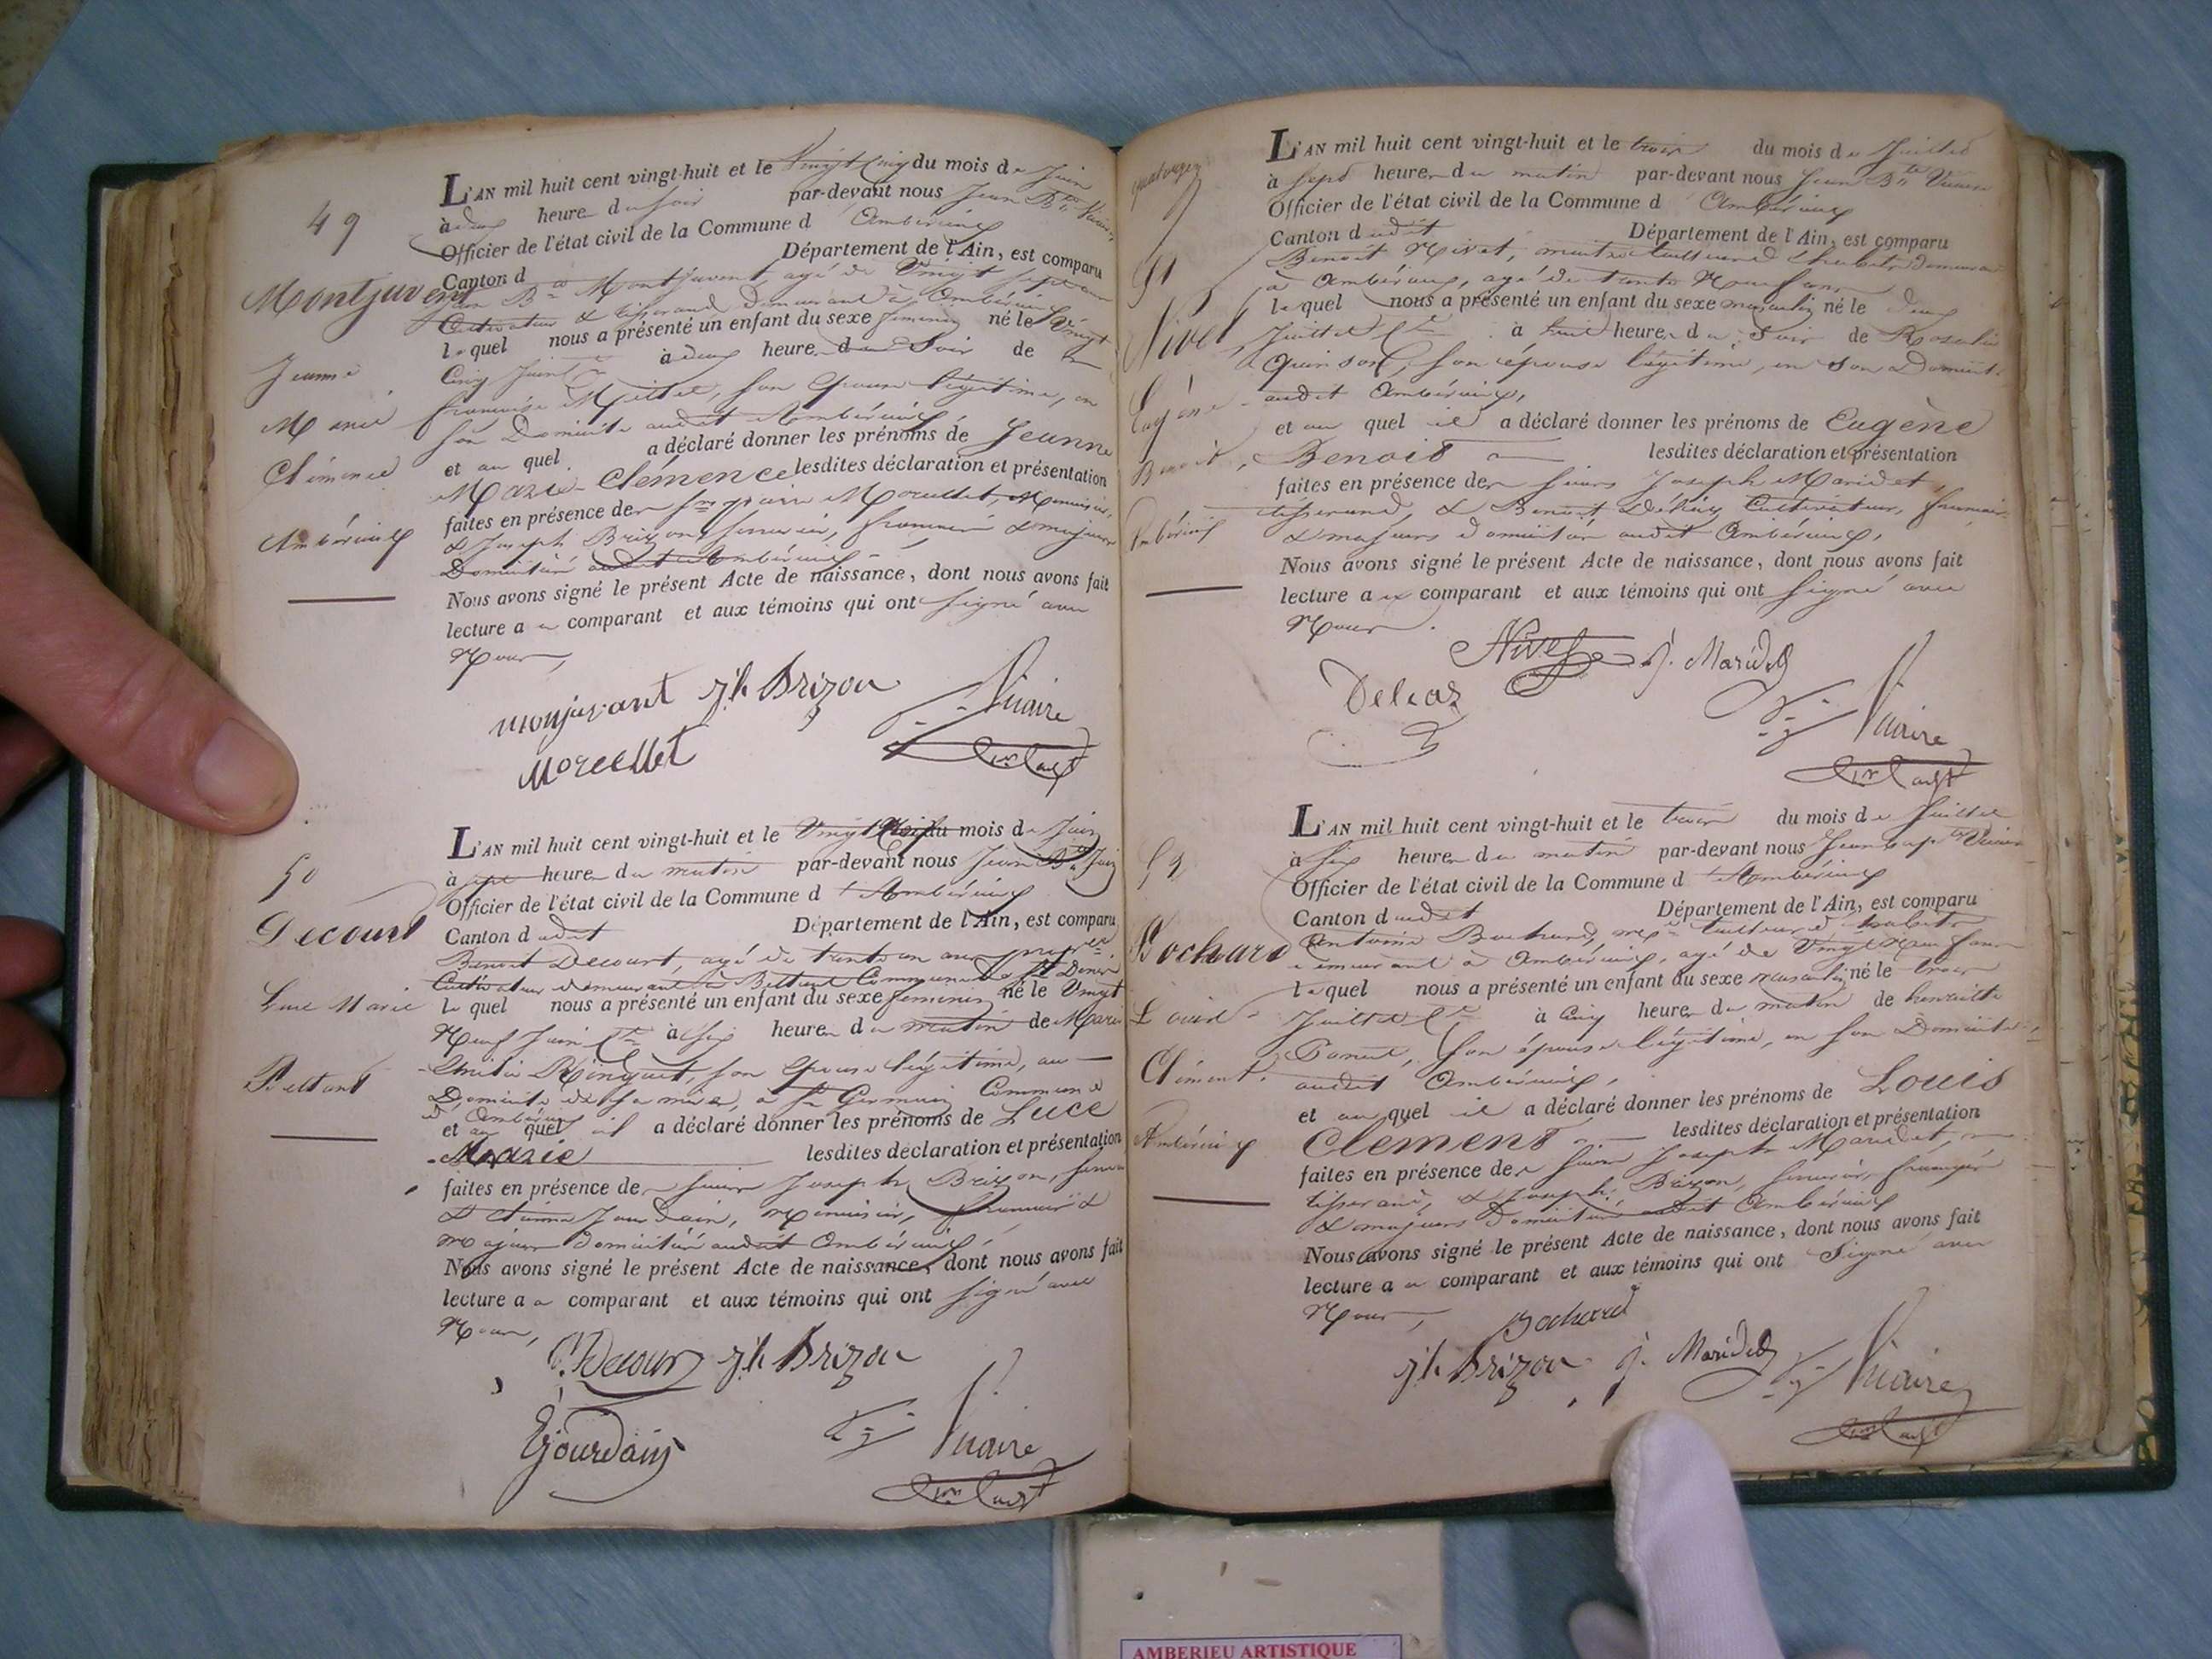 49
Montjuvent
Jeanne
Marie
Clémence
Ambérieux
L'AN mil huit cent vingt-huit et le Vingt Cinq du mois de Juin
à deux heure du soir par-devant nous Jean Bte Vicaire
Officier de l'état civil de la Commune d'Ambérieux
Canton d Département de l'Ain, est comparu
Montjuvent, agé de Vingt sept ans
Cultivateur & tisserand demeurant à Ambérieux
lequel nous a présenté un enfant du sexe feminin né le Vingt
Cinq Juin à deux heure du Soir de
françoise Millet, son épouse légitime, en
son Domicile audit Ambérieux
et au quel a déclaré donner les prénoms de Jeanne
Marie-Clémence lesdites déclaration et présentation
faites en présence de pierre Morellet, Menuisier,
& Joseph Brizon, serrurier, français & majeurs
Domiciliés audit Ambérieux
Nous avons signé le présent Acte de naissance, dont nous avons fait
lecture au comparant et aux témoins qui ont signé avec
Nous,
monjuvant jh Brizon Vicaire
Morellet
50
Decourt
Luce Marie
Bettant
L'AN mil huit cent vingt-huit et le Vingt Neuf du mois de Juin
à sept heure du matin par-devant nous Jean Bte
Officier de l'état civil de la Commune d'Ambérieux
Canton dudit Département de l'Ain, est comparu
Benoit Decourt, agé de trente un ans, propre
Cultivateur demeurant à Bettant Commune de St Denis
lequel nous a présenté un enfant du sexe feminin né le Vingt
Neuf Juin à Six heure du matin de Marie
Ringuet, son Epouse légitime, au
Domicile de sa mère, à St Germain Commune
d'Ambérieux
et au quel il a déclaré donner les prénoms de Luce
Marie lesdites déclaration et présentation
faites en présence de sieurs Joseph Brizon,
& Jourdain, Menuisier, français &
majeurs domiciliés audit Ambérieux
Nous avons signé le présent Acte de naissance, dont nous avons fait
lecture au comparant et aux témoins qui ont signé avec
Nous,
Decour jh Brizon
Ejourdain Vicaire
51
Nivet
Eugène
Benoit
Ambérieux
L'AN mil huit cent vingt-huit et le trois du mois de Juillet
à sept heure du matin par-devant nous Jean Bte Vicaire
Officier de l'état civil de la Commune d'Ambérieux
Canton dudit Département de l'Ain, est comparu
Benoit Nivet, demeurant
à Ambérieux, agé de trente Neuf ans
lequel nous a présenté un enfant du sexe masculin né le deux
Juillet à huit heure du Soir de Rosalie
Quinson, son épouse légitime, en son Domicile
audit Ambérieux,
et au quel il a déclaré donner les prénoms de Eugène
Benoit lesdites déclaration et présentation
faites en présence de sieurs Joseph Maridet,
tisserand, & Benoit Cultivateur, français
& majeurs domiciliés audit Ambérieux,
Nous avons signé le présent Acte de naissance, dont nous avons fait
lecture au comparant et aux témoins qui ont signé avec
Nous.
Nivet J. Maridet
Vicaire
52
Bochard
Louis
Clément
Ambérieux
L'AN mil huit cent vingt-huit et le trois du mois de Juillet
à six heure du matin par-devant nous Jean Bapte Vicaire
Officier de l'état civil de la Commune d'Ambérieux
Canton dudit Département de l'Ain, est comparu
Antoine Bochard,
demeurant à Ambérieux, agé de Vingt Neuf ans
lequel nous a présenté un enfant du sexe masculin né le trois
Juillet à Cinq heure du matin de henriette
son épouse légitime, en son Domicile
audit Ambérieux,
et au quel il a déclaré donner les prénoms de Louis
Clement lesdites déclaration et présentation
faites en présence de sieurs Joseph Maridet,
tisserand, & Joseph Brizon, serrurier, français
& majeurs Domiciliés audit Ambérieux
Nous avons signé le présent Acte de naissance, dont nous avons fait
lecture au comparant et aux témoins qui ont Signé avec
Nous,
Bochard
jh Brizon J. Maridet Vicaire
AMBERIEU ARTISTIQUE